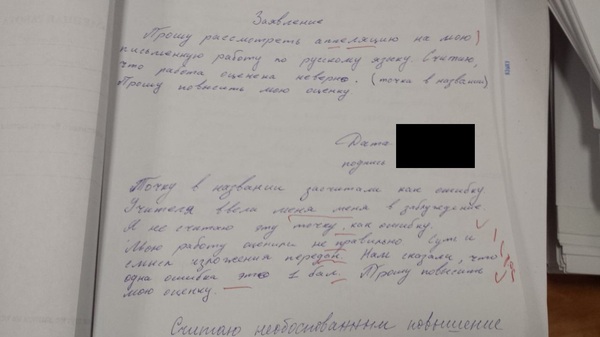 Заявление
Прошу рассмотреть аппеляцию на мою
письменную работу по русскому языку. Считаю,
что работа оценена неверно. (точка в названии)
Прошу повысить мою оценку
Дата
подпись
Точку в названии засчитали как ошибку.
Учителя ввели меня меня в заблуждение.
Я не считаю эту точку, как ошибку.
Мою работу оценили не правильно. Суть и
смысл изложения передан. Нам сказали, что
одна ошибка это 1 бал. Прошу повысить
мою оценку.
Считаю необоснованным повышение